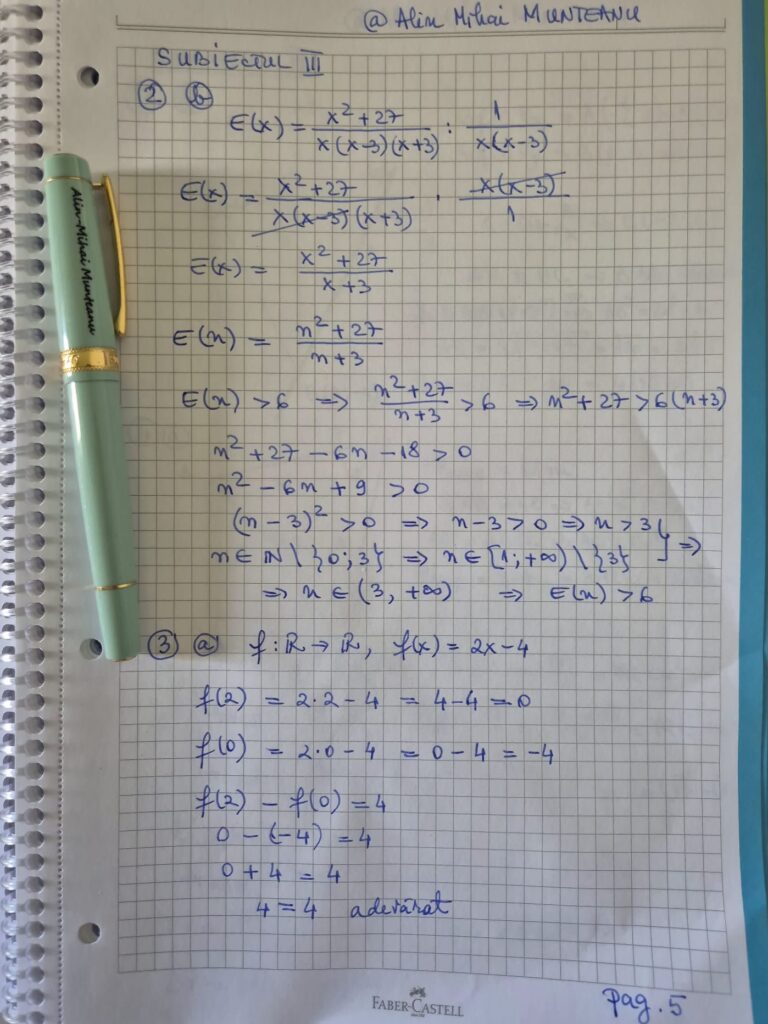 @ Alin Mihai MUNTEANU
SUBIECTUL III
② ⓑ E(x) = \frac{x² + 27}{x(x-3)(x+3)} : \frac{1}{x(x-3)}
E(x) = \frac{x² + 27}{x(x-3)(x+3)} · \frac{x(x-3)}{1}
E(x) = \frac{x² + 27}{x+3}
E(n) = \frac{n² + 27}{n+3}
E(n) > 6 ⇒ \frac{n² + 27}{n+3} > 6 ⇒ n² + 27 > 6(n+3)
n² + 27 - 6n - 18 > 0
n² - 6n + 9 > 0
(n - 3)² > 0 ⇒ n - 3 > 0 ⇒ n > 3
n ∈ ℕ \ {0; 3} ⇒ n ∈ [1; +∞) \ {3} } ⇒
⇒ n ∈ (3, +∞) ⇒ E(n) > 6
③ ⓐ f : ℝ → ℝ, f(x) = 2x - 4
f(2) = 2·2 - 4 = 4 - 4 = 0
f(0) = 2·0 - 4 = 0 - 4 = -4
f(2) - f(0) = 4
0 - (-4) = 4
0 + 4 = 4
4 = 4 adevărat
FABER-CASTELL
pag. 5
Alin-Mihai Munteanu